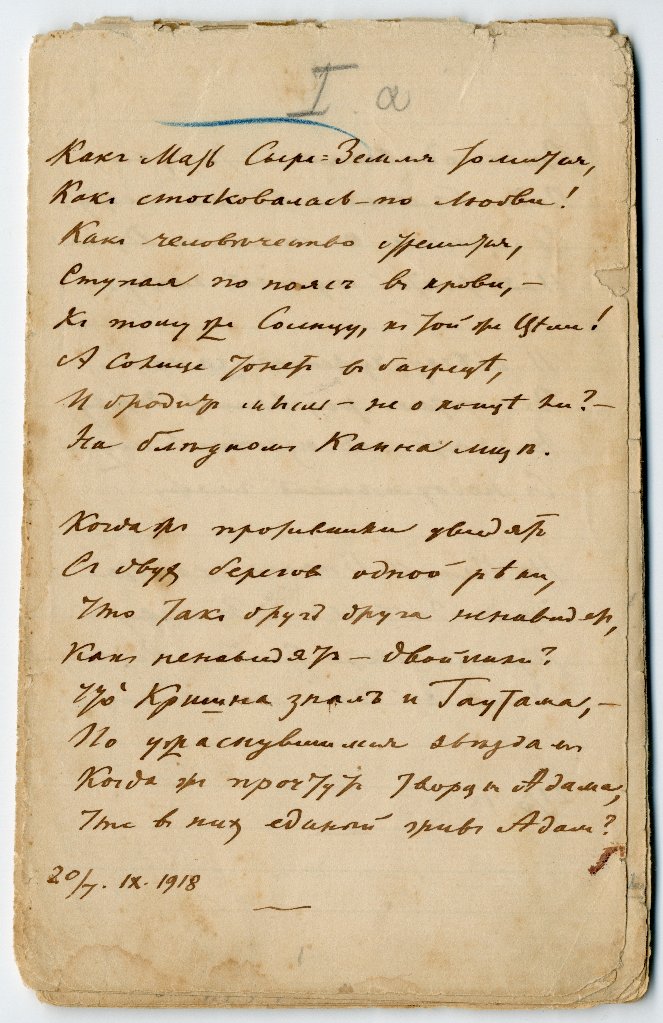 I a
Какъ Мать Сыра-Земля томится,
Какъ стосковалась — по Любви!
Какъ человѣчество стремится,
Ступая по поясъ въ крови, —
Къ тому же Солнцу, къ той же Цѣли!
А солнце тонетъ въ багрецѣ,
И бродитъ мысль — не о концѣ ли? —
На блѣдномъ Каина лицѣ.
Когда жъ противники увидятъ
Съ двухъ береговъ одной рѣки,
Что такъ другъ друга ненавидятъ,
Какъ ненавидятъ — двойники?
Что Кришна зналъ и Гаутама, —
По ужаснувшимся звѣздамъ
Когда жъ прочтутъ творцы Адама,
Что въ нихъ единый живъ Адамъ?
20/7. IX. 1918